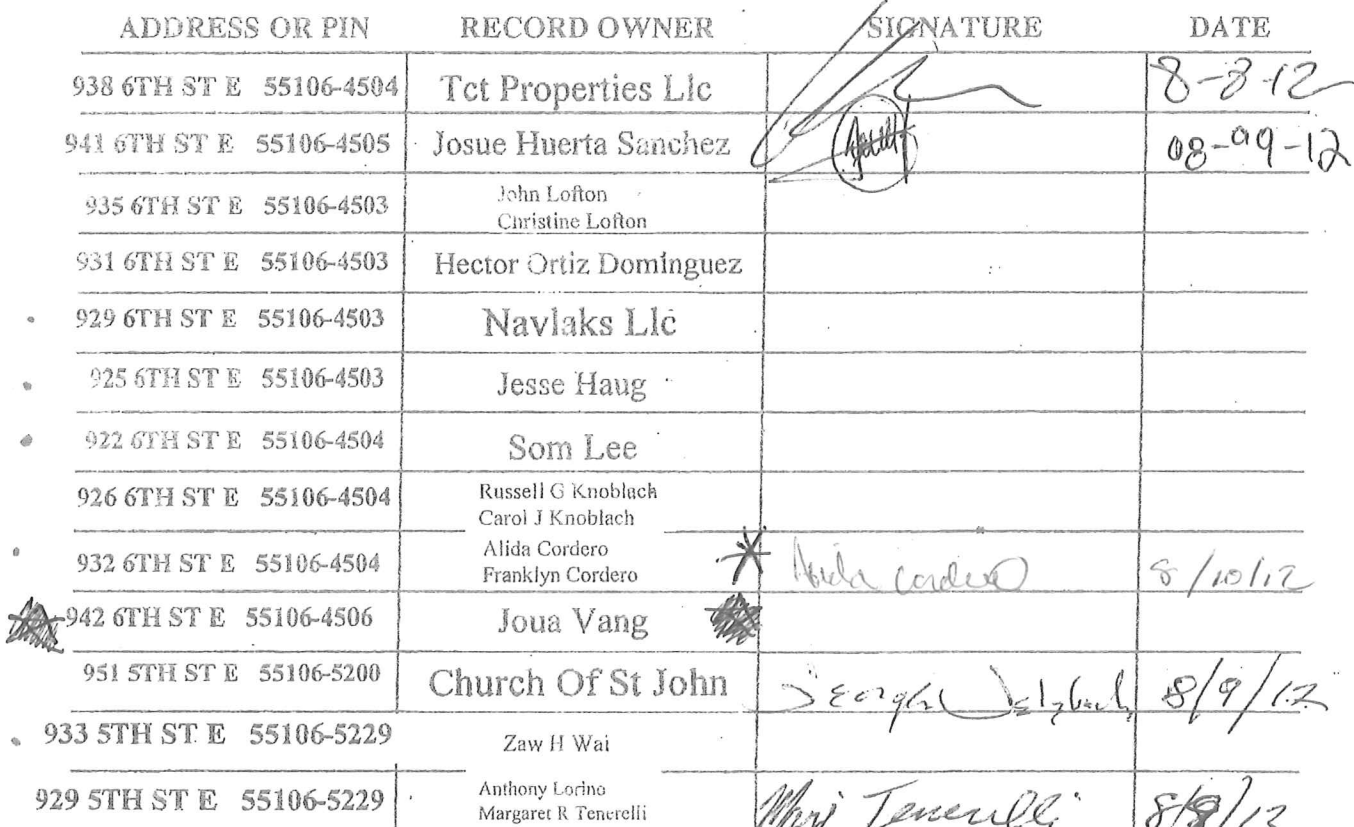 ADDRESS OR PIN RECORD OWNER SIGNATURE DATE
938 6TH ST E 55106-4504 Tct Properties Llc 8-8-12
941 6TH ST E 55106-4505 Josue Huerta Sanchez 08-09-12
935 6TH ST E 55106-4503 John Lofton
Christine Lofton
931 6TH ST E 55106-4503 Hector Ortiz Dominguez
929 6TH ST E 55106-4503 Navlaks Llc
925 6TH ST E 55106-4503 Jesse Haug
922 6TH ST E 55106-4504 Som Lee
926 6TH ST E 55106-4504 Russell G Knoblach
Carol J Knoblach
932 6TH ST E 55106-4504 Alida Cordero
Franklyn Cordero Alida Cordero 8/10/12
942 6TH ST E 55106-4506 Joua Vang
951 5TH ST E 55106-5200 Church Of St John 8/9/12
933 5TH ST E 55106-5229 Zaw H Wai
929 5TH ST E 55106-5229 Anthony Lorino
Margaret R Tenerelli Tenerelli